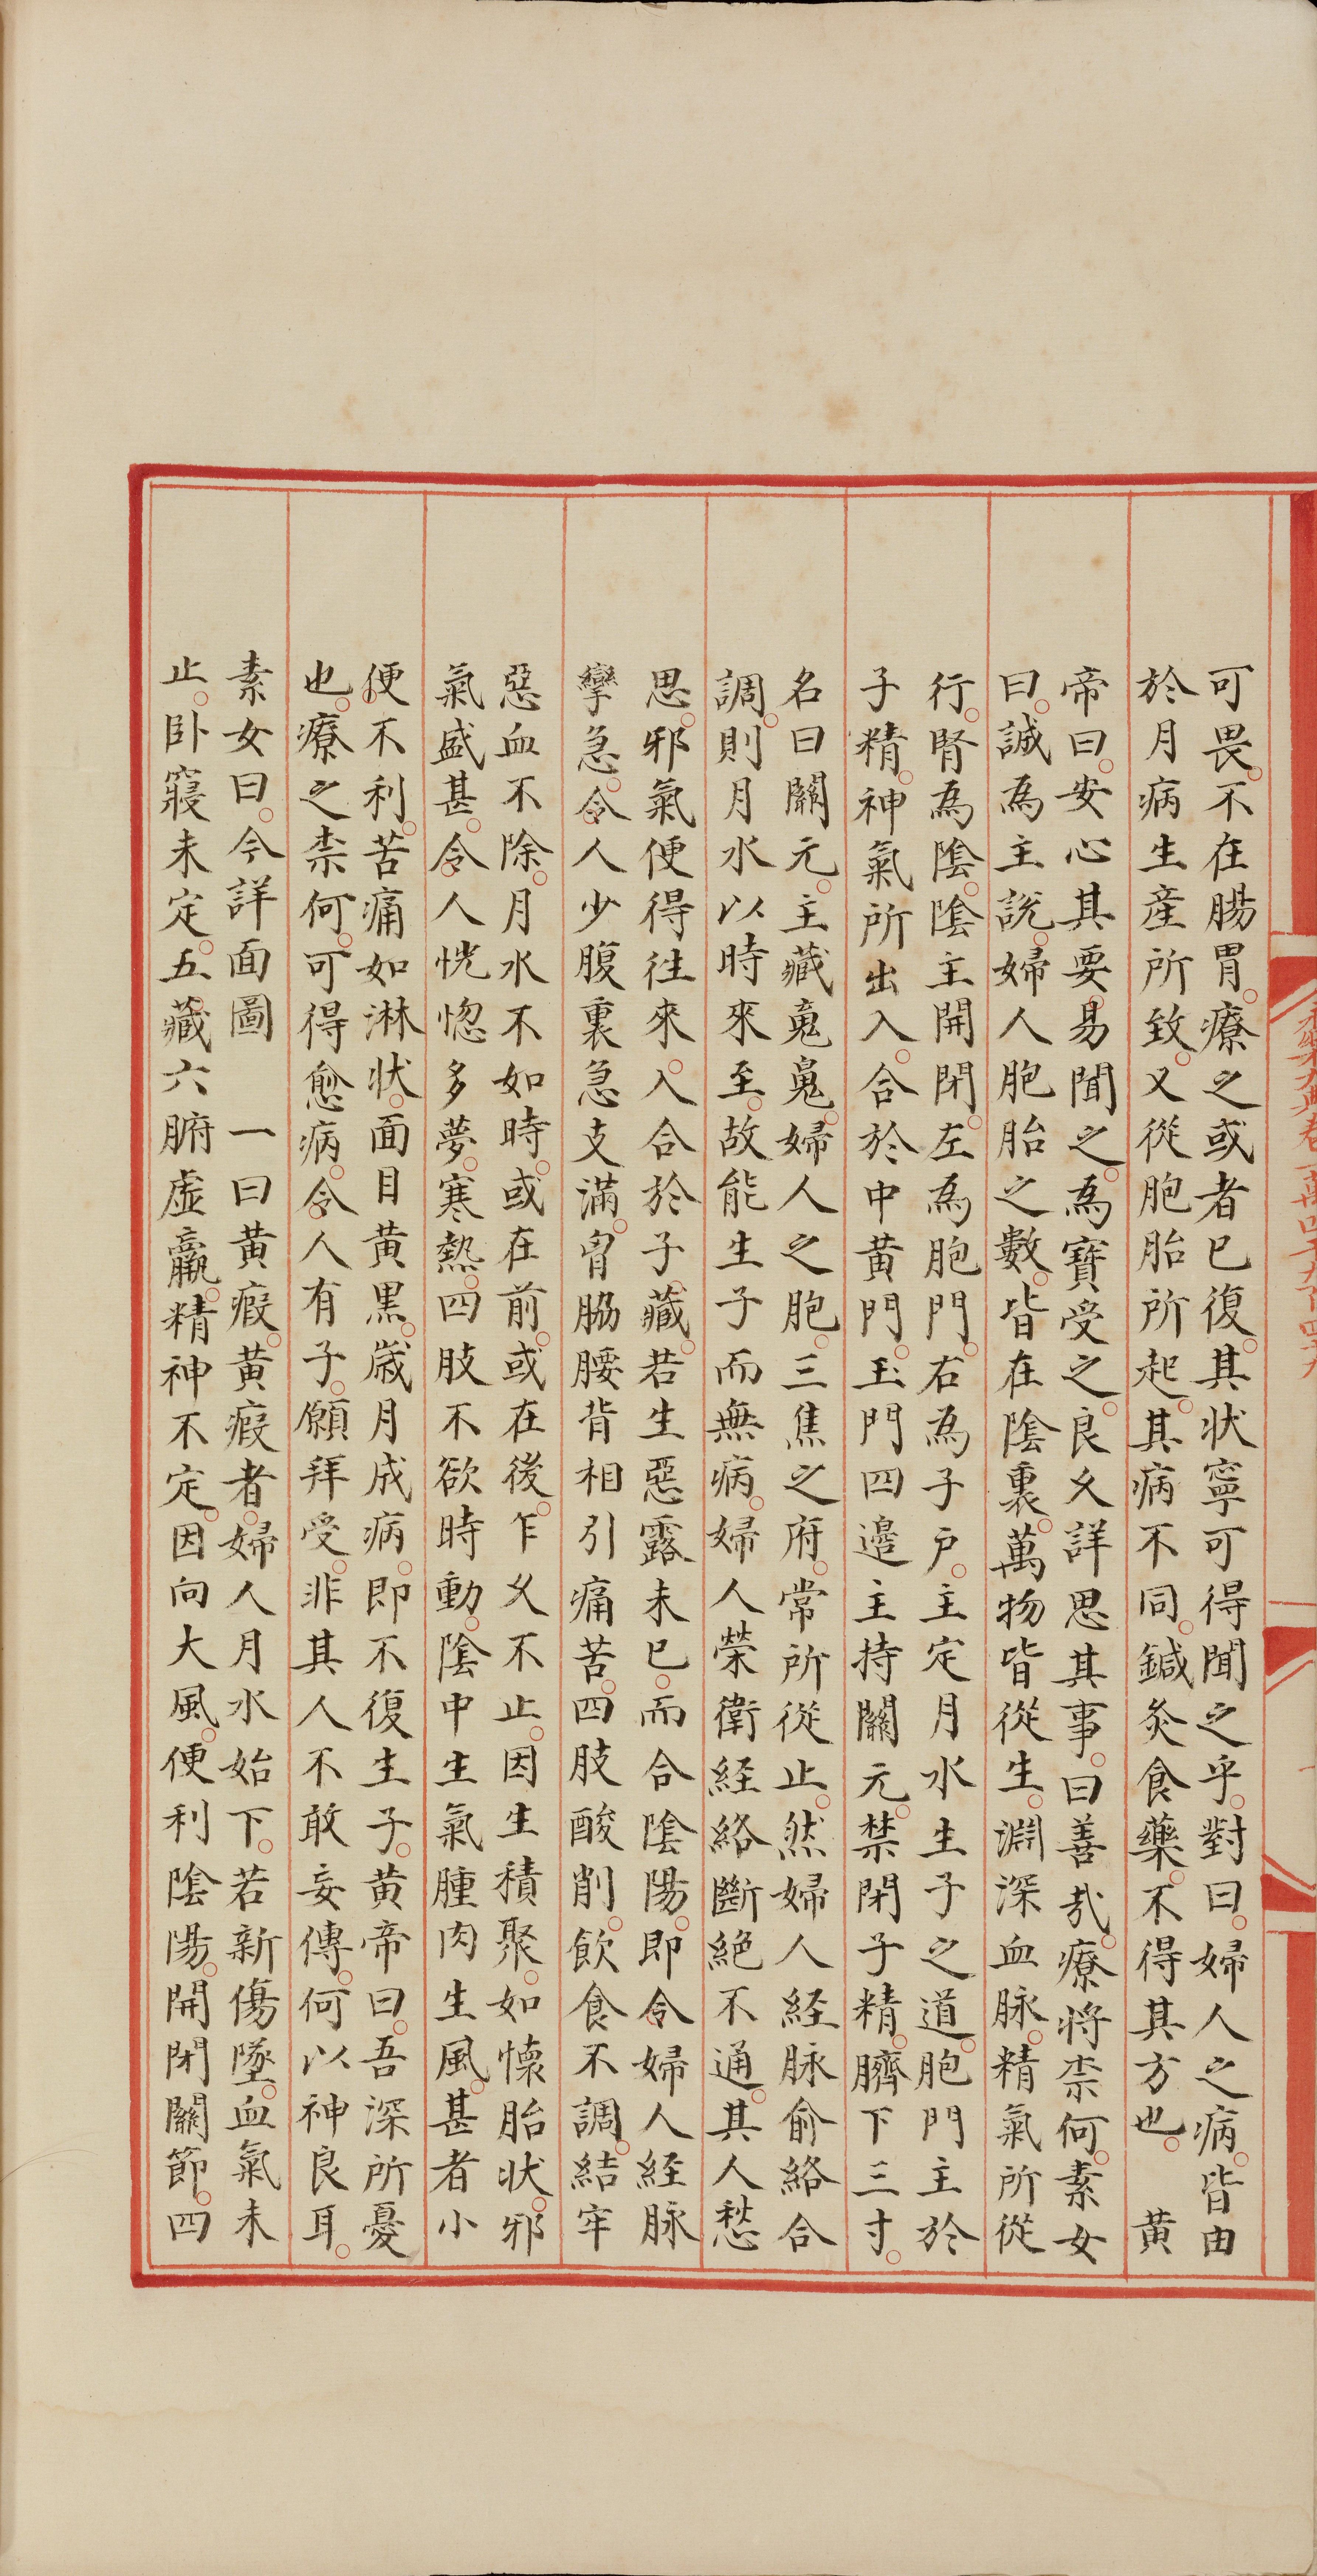 可畏不在腸胃療之或者已復其狀寧可得聞之乎對曰婦人之病皆由
於月病生產所致又從胞胎所起其病不同鍼灸食藥不得其方也　黃
帝曰安心其要易聞之為寶受之良久詳思其事曰善哉療將柰何素女
曰誠為主說婦人胞胎之數皆在陰裏萬物皆從生淵深血脉精氣所從
行腎為陰陰主開閉左為胞門右為子戶主定月水生子之道胞門主於
子精神氣所出入合於中黃門玉門四邊主持關元禁閉子精臍下三寸
名曰關元主藏魂魄婦人之胞三焦之府常所從止然婦人経脉俞絡合
調則月水以時來至故能生子而無病婦人榮衛経絡斷絕不通其人愁
思邪氣便得往來入合於子藏若生惡露未已而合陰陽即令婦人経脉
攣急令人少腹裏急支滿胷脇腰背相引痛苦四肢酸削飲食不調結牢
惡血不除月水不如時或在前或在後乍久不止因生積聚如懷胎狀邪
氣盛甚令人恍惚多夢寒熱四肢不欲時動陰中生氣腫肉生風甚者小
便不利苦痛如淋狀面目黃黑歲月成病即不復生子黃帝曰吾深所憂
也療之柰何可得愈病令人有子願拜受非其人不敢妄傳何以神良耳
素女曰今詳面圖　一曰黃瘕黃瘕者婦人月水始下若新傷墜血氣未
止卧寢未定五藏六腑虛羸精神不定因向大風便利陰陽開閉關節四
永樂大典卷一萬四千九百四十九